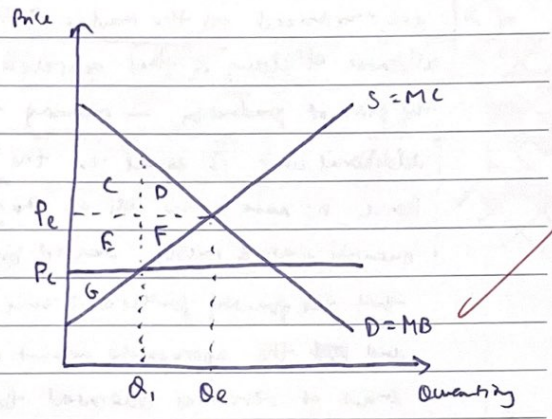 Price
S = MC
C D
Pe
E F
Pc
G
D = MB
Q1 Qe Quantity